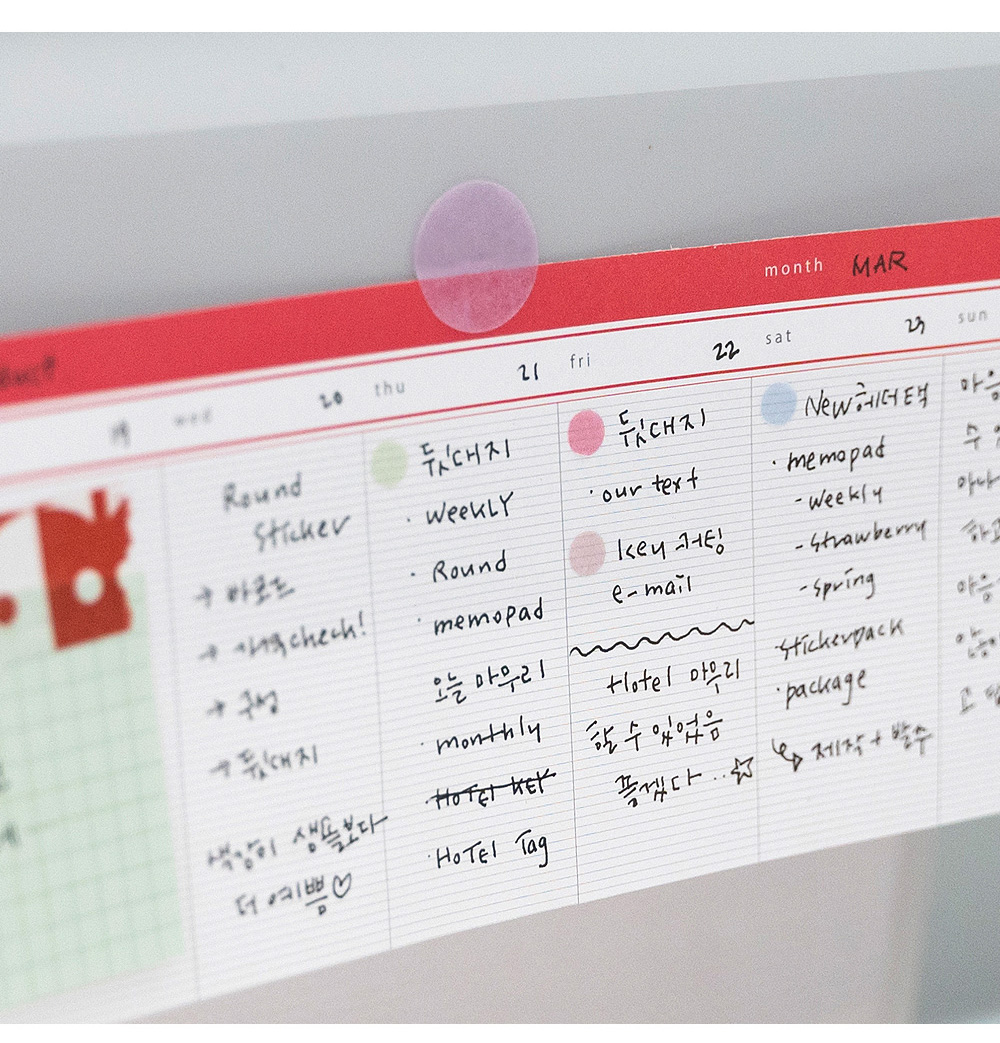 month MAR
19
wed 20
Round
Sticker
→ 바로드
→ 가격check!
→ 구성
→ 뒷대지
색감이 샘플보다
더 예쁨♡
thu 21
뒷대지
· WEEKLY
· Round
· memopad
오늘 마무리
· monthly
· HoTEl KEY
· HoTEl Tag
fri 22
뒷대지
· our text
key 커팅
e-mail
Hotel 마무리
할 수 있었음
좋겠다..☆
sat 23
New헤더택
· memopad
- weekly
- strawberry
- spring
· stickerpack
· package
↳ 제작 + 발주
sun
마음
수